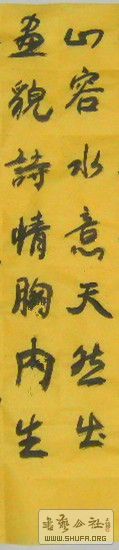 山容水意天然出
畫貌詩情胸内生
書藝公社
www.SHUFA.ORG